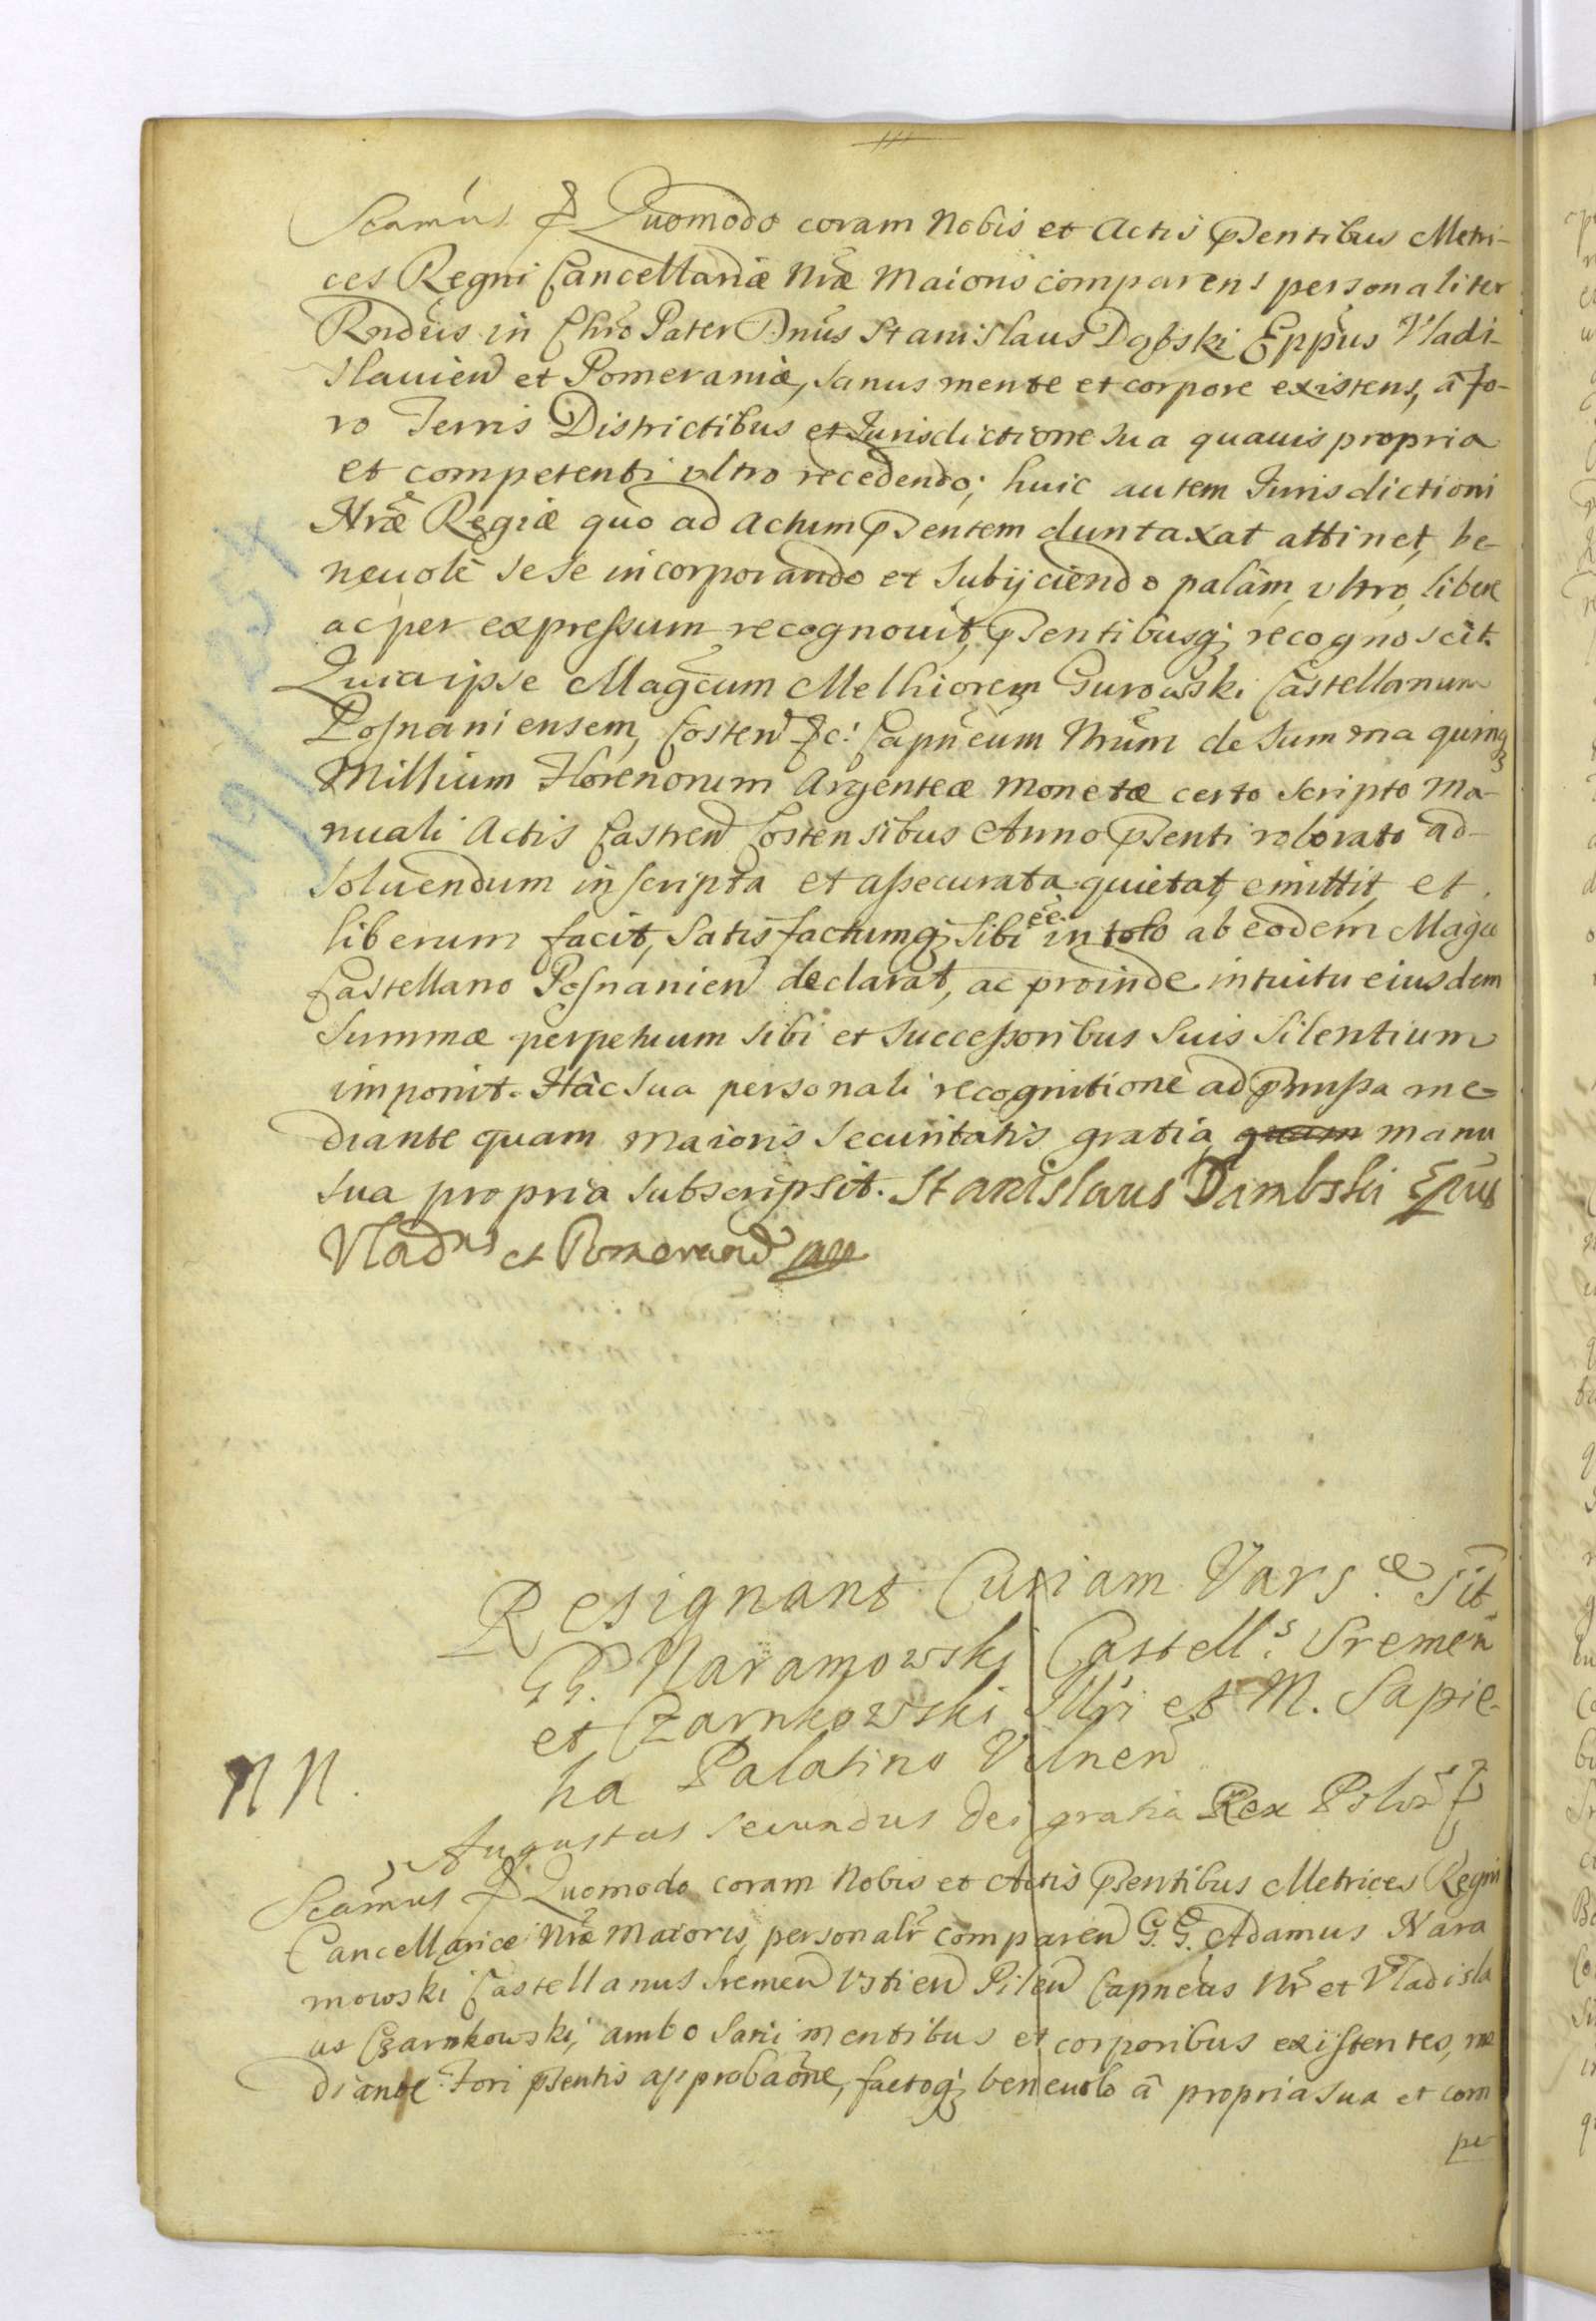 Scamus & Quomodo coram Nobis et Actis Pñsentibus Metri-
ces Regni Cancellariæ Nræ Maioris comparens personaliter
Rndus in Chro Pater Dnus Stanislaus Dąbski Eppus Vladi-
slauien et Pomeraniæ, sanus mente et corpore existens, â fo-
ro Terris Districtibus et Jurisdictione sua quauis propria
et competenti vltro recedendo; huic autem Jurisdictioni
Nræ Regiæ quo ad Actum Pñsentem duntaxat attinet, be-
neuolè sese incorporando et subijciendo palàm, vltro, libere
ac per expressum recognouit, Pñsentibusq; recognoscit.
Quia ipse Magcum Melhiorem Gurowski Castellanum
Posnaniensem, Costen &c: Capneum Nrum de summa quinq;
Millium Florenorum Argenteæ Monetæ certo scripto ma-
nuali Actis Castren Costensibus Anno Pñsenti roborato ad-
soluendum inscripta et assecurata quietat, emittit, et
liberum facit, satisfactumq; sibi ee in toto ab eodem Magco
Castellano Posnanien declarat, ac proinde intuitu eiusdem
summæ perpetuum sibi et successoribus suis silentium
imponit. Hâc sua personali recognitione ad Pmissa me-
diante quam maioris securitatis gratia quam manu
sua propria subscripsit. Stanislaus Dambski Epus
Vladns et Pomeran mp
Resignant Curiam Vars. sit.
GG. Naramowski Castells. Sremen
et Czarnkowski Illri et M. Sapie-
ha Palatino Vilnen
NN.
Augustus secundus Dei gratia Rex Polon &
Scamus & Quomodo coram Nobis et Actis Pñsentibus Metrices Regni
Cancellariæ Nræ Maioris, personalr comparen G. G. Adamus Nara
mowski Castellanus Sremen Vstien Pilen Capneus Nr et Vladisla
us Czarnkowski, ambo sani mentibus et corporibus existentes, me
diante Fori pñsentis approbaõne, factoq; beneuolo â propria sua et com
pe-